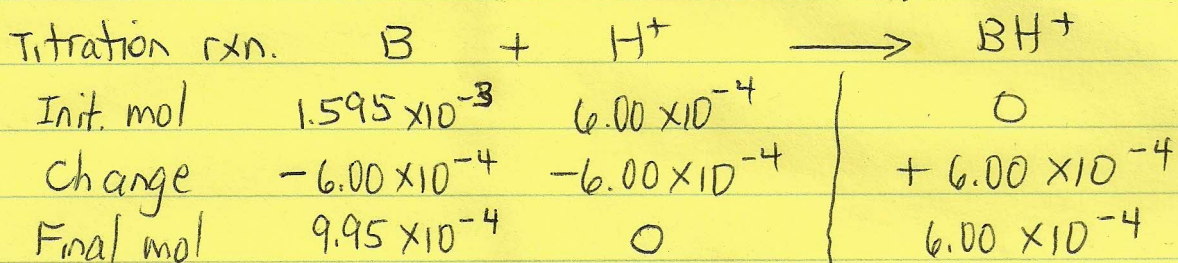 Titration rxn. B + H⁺ ⟶ BH⁺
Init. mol 1.595 x10⁻³ 6.00 x10⁻⁴ 0
Change -6.00 x10⁻⁴ -6.00 x10⁻⁴ + 6.00 x10⁻⁴
Final mol 9.95 x10⁻⁴ 0 6.00 x10⁻⁴